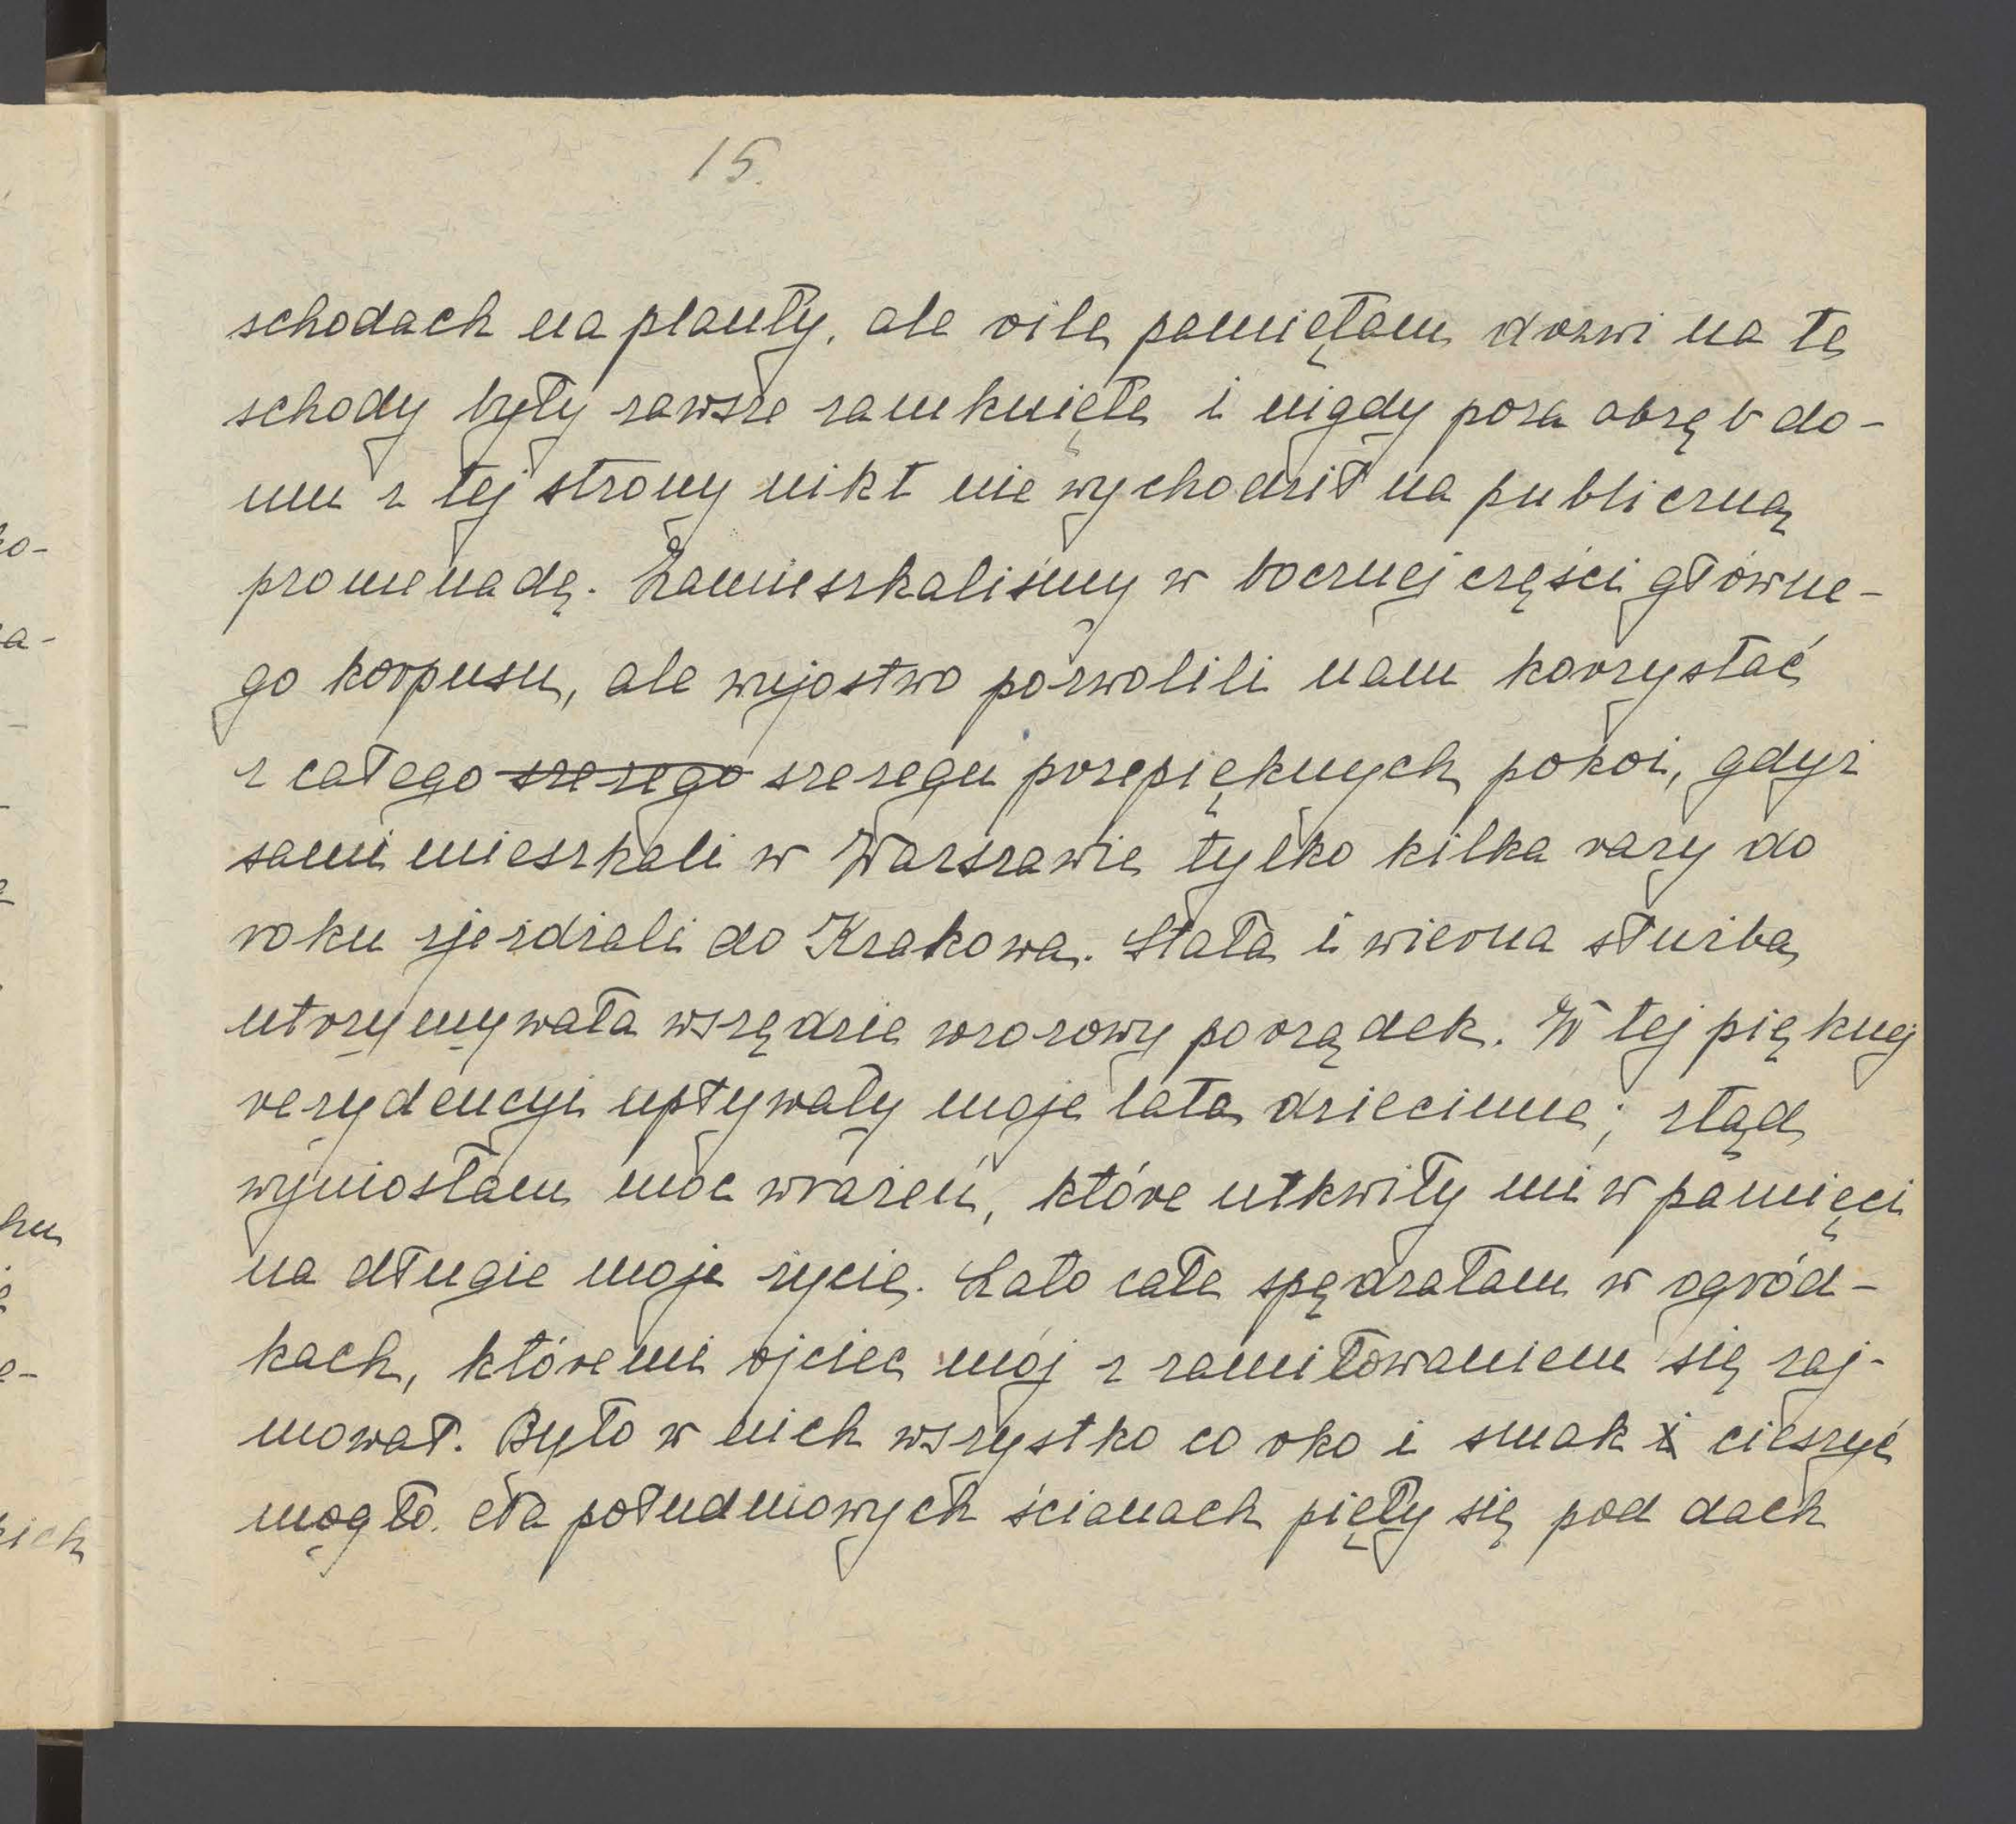 15.
schodach na planty, ale o ile pamiętam drzwi na te
schody były zawsze zamknięte i nigdy poza obręb do-
mu z tej strony nikt nie wychodził na publiczną
promenadę. Zamieszkaliśmy w bocznej części główne-
go korpusu, ale wujostwo pozwolili nam korzystać
z całego szeregu szeregu przepięknych pokoi, gdyż
sami mieszkali w Warszawie tylko kilka razy do
roku zjeżdżali do Krakowa. Stała i wierna służba
utrzymywała wszędzie wzorowy porządek. W tej pięknej
rezydencyi upływały moje lata dziecinne; stąd
wyniosłam moc wrażeń, które utkwiły mi w pamięci
na długie moje życie. Lato całe spędzałam w ogród-
kach, któremi ojciec mój z zamiłowaniem się zaj-
mował. Było w nich wszystko co oko i smak cieszyć
mogło. Na południowych ścianach pięły się pod dach
ko-
hu
e-